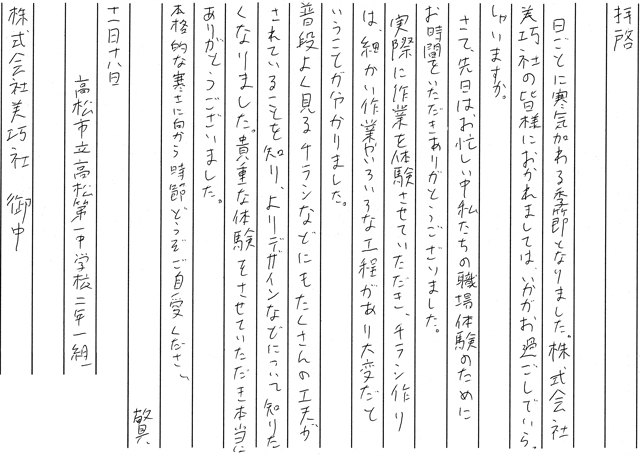 拝啓
日ごとに寒気加わる季節となりました。株式会社
美巧社の皆様におかれましては、いかがお過ごしでいら
しゃいますか。
さて、先日はお忙しい中私たちの職場体験のために
お時間をいただきありがとうございました。
実際に作業を体験させていただき、チラシ作り
は、細かい作業やいろいろな工程があり大変だと
いうことが分かりました。
普段よく見るチラシなどにもたくさんの工夫が
されていることを知り、よりデザインなどについて知りた
くなりました。貴重な体験をさせていただき本当に
ありがとうございました。
本格的な寒さに向かう時節どうぞご自愛ください
敬具
十一月十八日
高松市立高松第一中学校二年一組
株式会社美巧社 御中